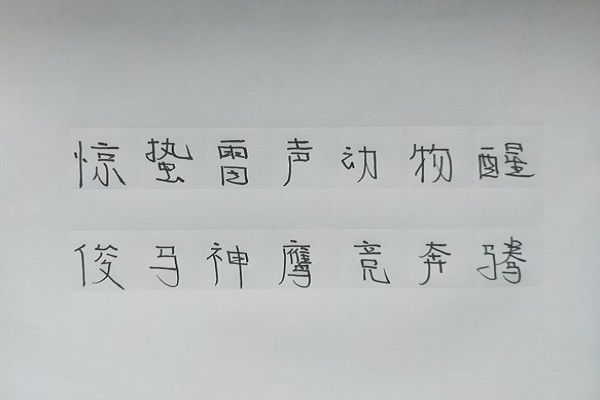 惊蛰雷声动物醒
俊马神鹰竞奔腾